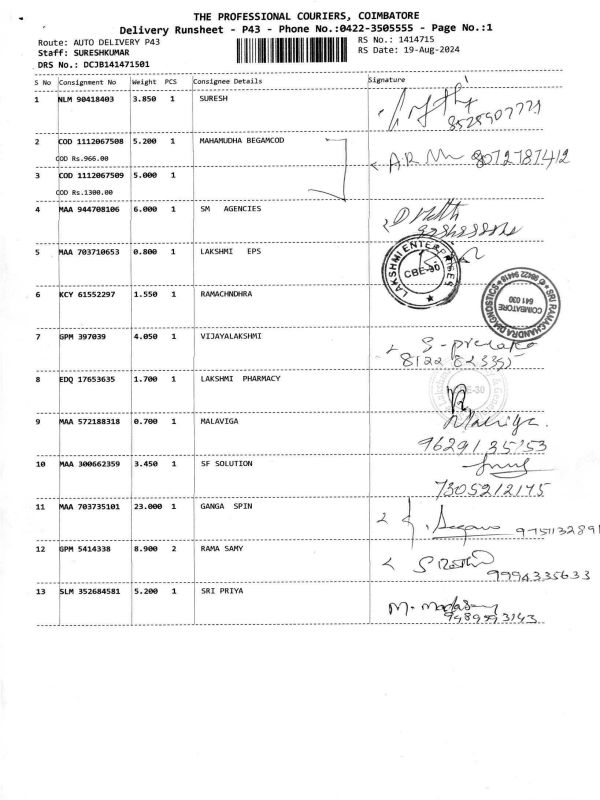 THE PROFESSIONAL COURIERS, COIMBATORE
Delivery Runsheet - P43 - Phone No.:0422-3505555 - Page No.:1
Route: AUTO DELIVERY P43
Staff: SURESHKUMAR
DRS No.: DCJB141471501
RS No.: 1414715
RS Date: 19-Aug-2024
S No Consignment No Weight PCS Consignee Details Signature
1 NLM 90418403 3.850 1 SURESH
8528907771
2 COD 1112067508 5.200 1 MAHAMUDHA BEGAMCOD
COD Rs.966.00
A.R 8072787412
3 COD 1112067509 5.000 1
COD Rs.1300.00
4 MAA 944708106 6.000 1 SM AGENCIES
5 MAA 703710653 0.800 1 LAKSHMI EPS
LAKSHMI ENTERPRISES
CBE-30
6 KCY 61552297 1.550 1 RAMACHNDHRA
SRI RAMACHANDRA DIAGNOSTICS
COIMBATORE
641 030
7 GPM 397039 4.050 1 VIJAYALAKSHMI
8 EDQ 17653635 1.700 1 LAKSHMI PHARMACY
CBE-30
9 MAA 572188318 0.700 1 MALAVIGA
Malviga.
9629135153
10 MAA 300662359 3.450 1 SF SOLUTION
7305212175
11 MAA 703735101 23.000 1 GANGA SPIN
9751132891
12 GPM 5414338 8.900 2 RAMA SAMY
9994335633
13 SLM 352684581 5.200 1 SRI PRIYA
9489993143